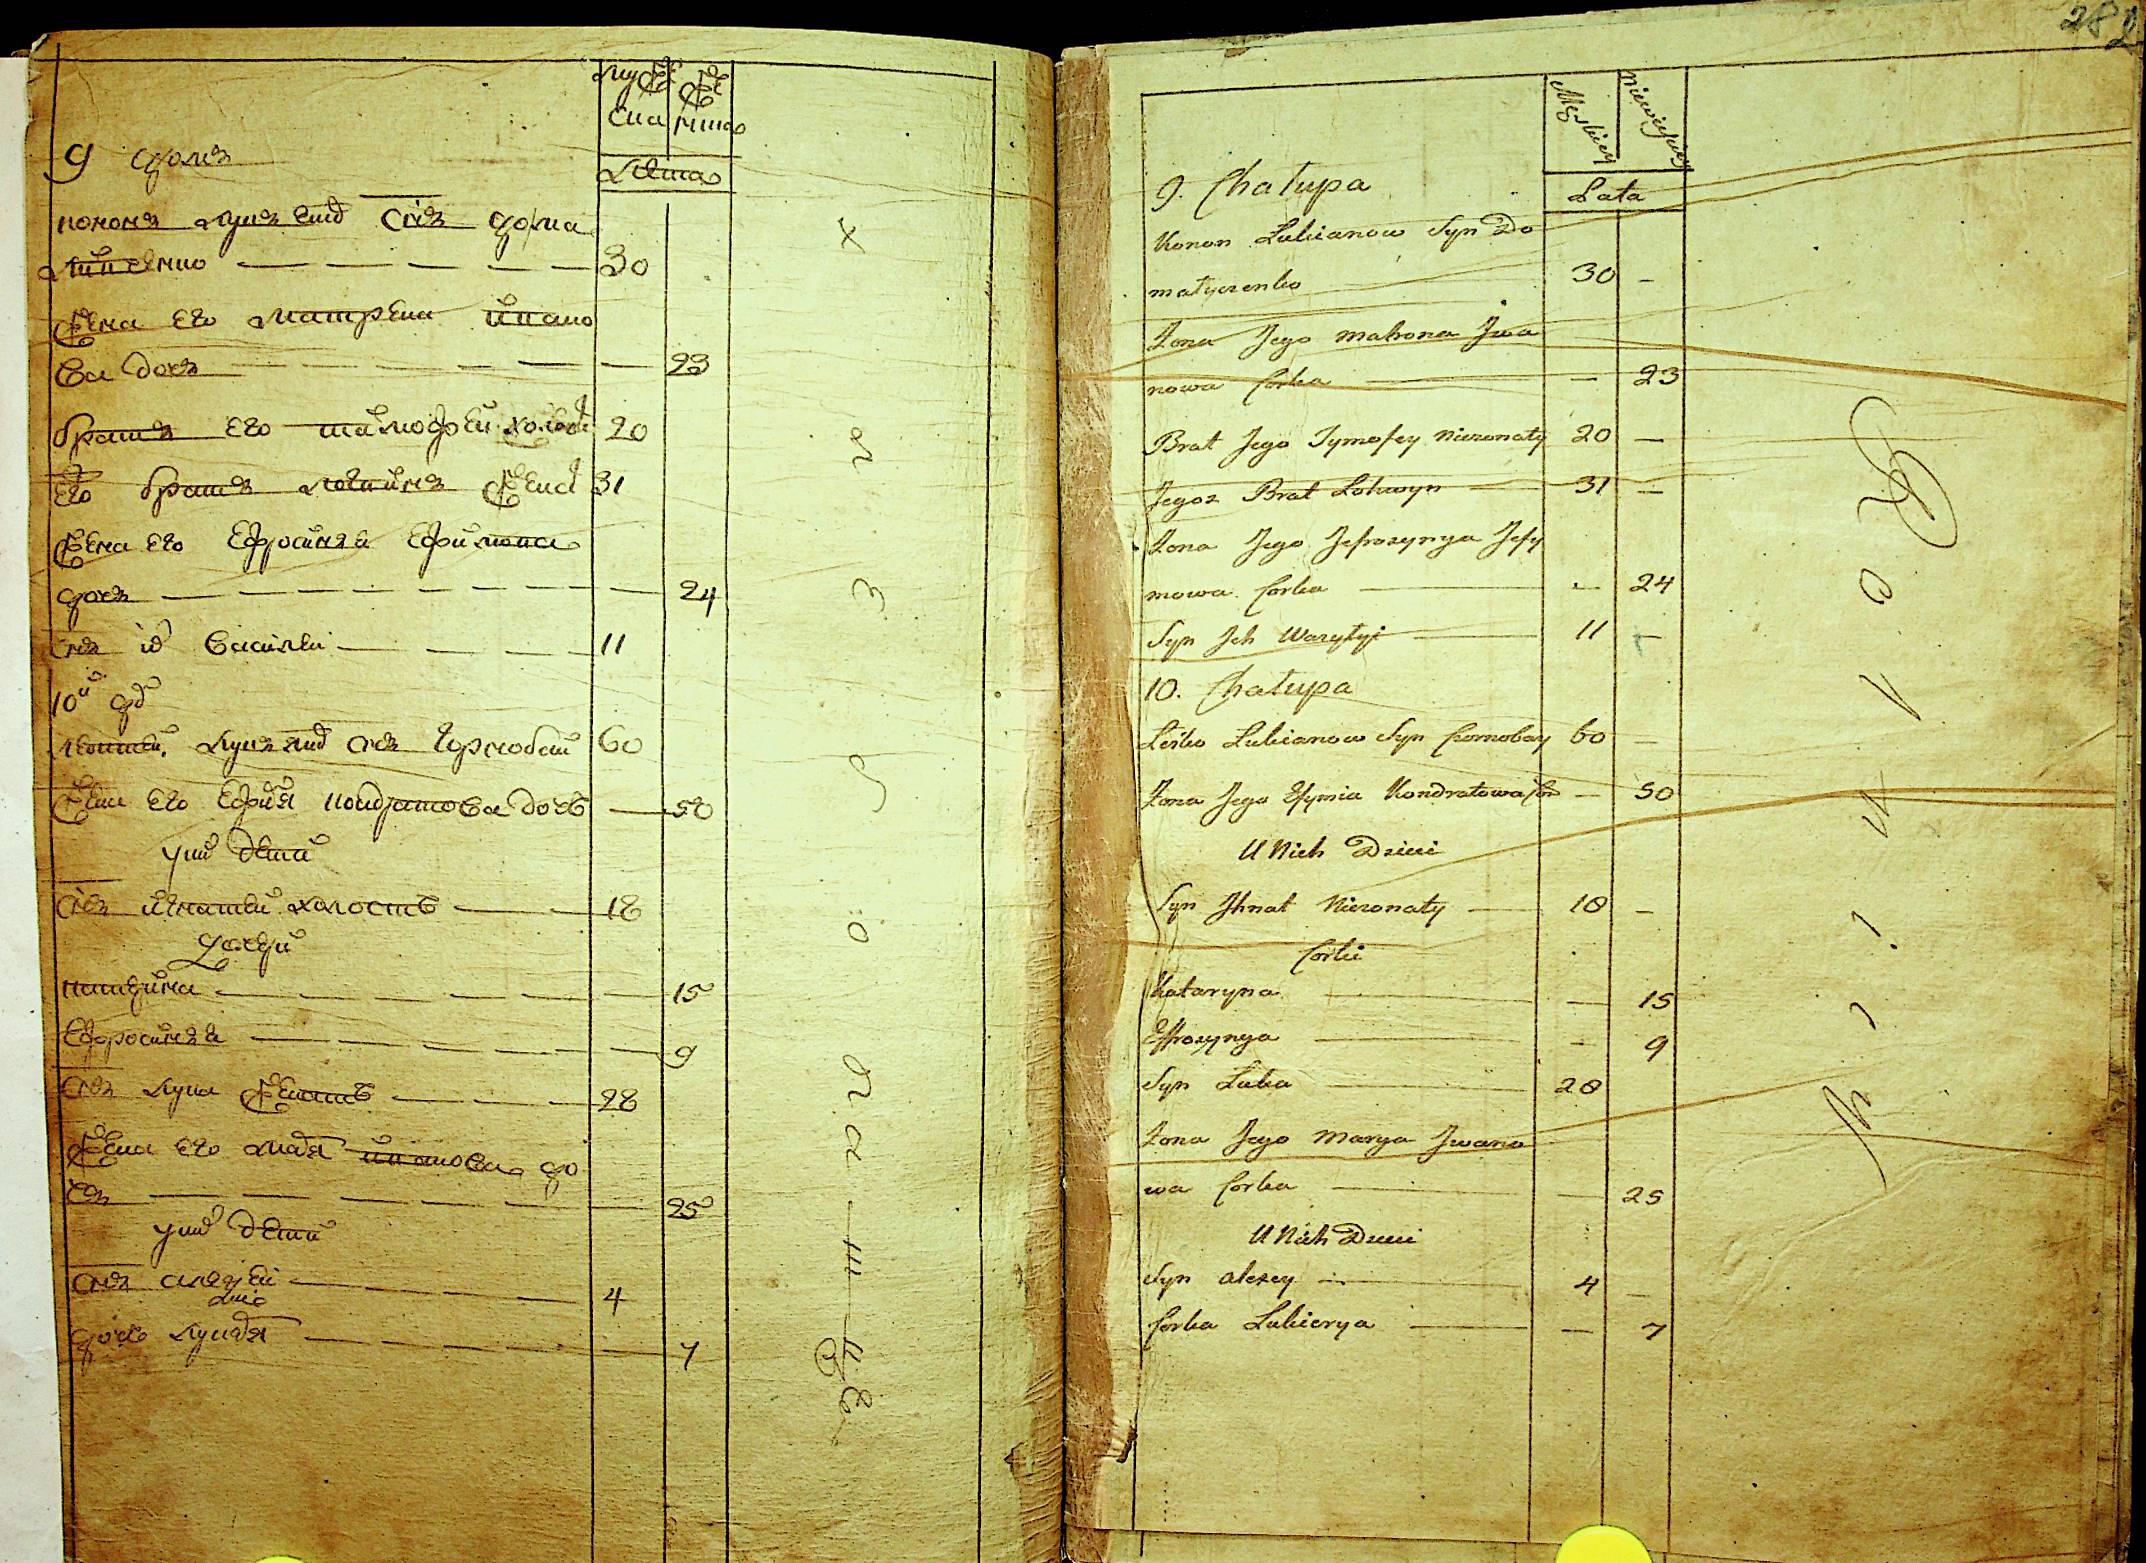 муже
ска
же
нска
Лета
9 домъ
кононъ лукъяновъ снъ дома
тиченко 30
жена его матрена ивано
ва дочь 23
братъ его тимофей холостъ 20
его братъ логвинъ женатъ 31
жена его ефросинья ефимова
дочь 24
снъ их василей 11
10й домъ
левтей лукъяновъ снъ чорнобай 60
жена его ефимия кондратова дочь 50
у них дети
снъ игнатей холостъ 18
дочери
катерина 15
ефросинья 9
снъ лука женатъ 28
жена его мария иванова до
чь 25
у них дети
снъ алексей 4
дочь лукерия 7
282
Męskiey
Niewieściey
Lata
9. Chałupa
Konon Łukianow Syn Do
matyczenko 30 —
Żona Jego Matrona Jwa
nowa Corka — 23
Brat Jego Tymofey Nieżonaty 20 —
Jegoż Brat Łohwyn 31 —
Żona Jego Jefrozynya Jefy
mowa Corka — 24
Syn Jch Wasylyi 11 —
10. Chałupa
Leśko Łukianow Syn Czornobay 60 —
Żona Jego Efymia Kondratowa Cor — 50
U Nich Dzieci
Syn Jhnat Nieżonaty 18 —
Corki
Kataryna — 15
Effrozynya — 9
Syn Łuka 28
Żona Jego Marya Jwano
wa Corka — 25
U Nich Dzieci
Syn Alexey 4 —
Corka Łukierya — 7